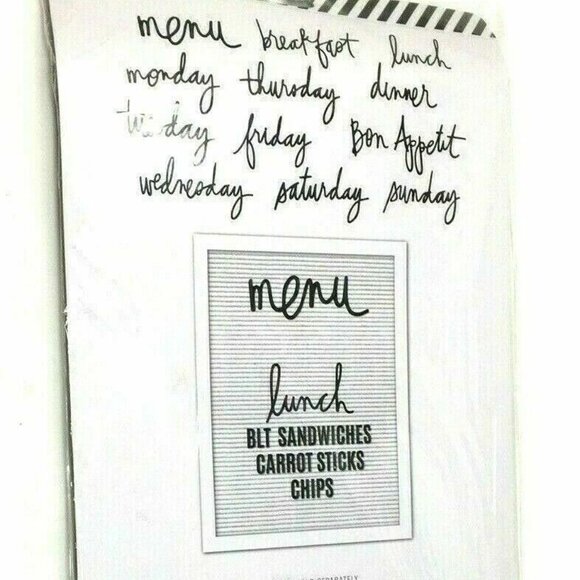 menu breakfast lunch
monday thursday dinner
tuesday friday Bon Appetit
wednesday saturday sunday
menu
lunch
BLT SANDWICHES
CARROT STICKS
CHIPS
SEPARATELY